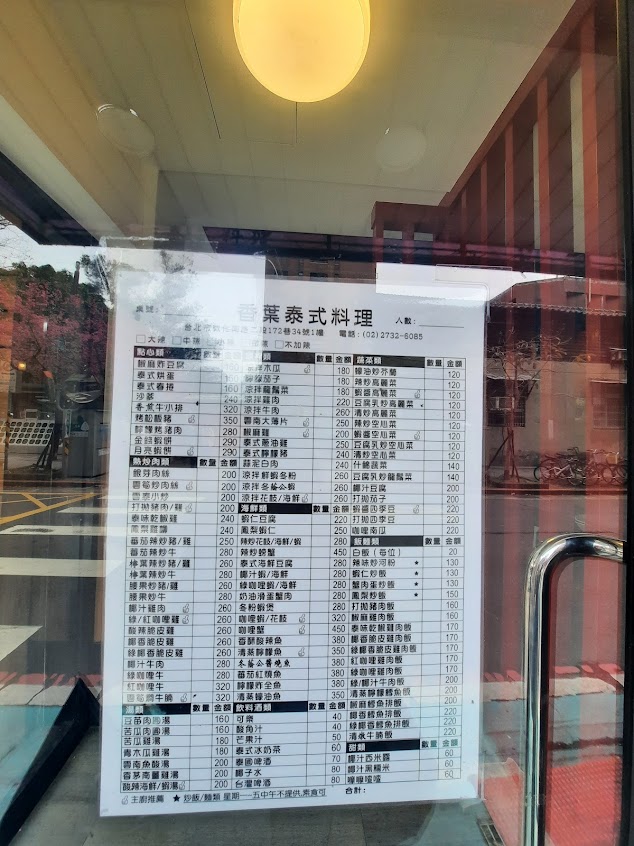 桌號:
香葉泰式料理
人數:
172巷34號1樓 電話:(02)2732-6085
不加辣
點心類
椒麻炸豆腐
泰式烘蛋
泰式春捲 160
沙嗲 240
320
烤松板豬 350
檸檬烤豬肉 280
金錢蝦餅 290
月亮蝦餅 290
熱炒肉類 數量 金額
肉絲 200
炒肉絲 200
雲泰小炒 200
打拋豬肉/雞 200
泰味乾椒雞 240
240
番茄辣炒豬/雞 250
番茄辣炒牛 280
葉辣炒豬/雞 260
葉辣炒牛 280
腰果炒豬/雞 260
腰果炒牛 280
椰汁雞肉 260
綠/紅咖哩雞 260
酸辣脆皮雞 260
椰香脆皮雞 260
綠椰香脆皮雞 260
椰汁牛肉 280
綠咖哩牛 280
紅咖哩牛 280
牛腩 320
數量 金額
豆苗肉圓湯 160
苦瓜肉圓湯 160
苦瓜雞湯 180
青木瓜雞湯 180
雲南魚酸湯 200
香茅南薑雞湯 200
酸辣海鮮/蝦湯 200
數量 金額
涼拌木瓜 180
檸檬茄子 180
涼拌龍鬚菜 180
涼拌雞肉 220
涼拌牛肉 260
雲南大薄片 250
椒麻雞 260
泰式蔥油雞 250
泰式檸檬豬 250
蒜泥白肉 240
涼拌鮮蝦冬粉 260
涼拌冬蔭公蝦 260
涼拌花枝/海鮮 260
海鮮類 數量 金額
蝦仁豆腐 240
鳳梨蝦仁 250
辣炒花枝/海鮮/蝦 280
辣炒螃蟹 450
泰式海鮮豆腐 280
椰汁蝦/海鮮 280
綠咖哩蝦/海鮮 280
奶油滑蛋蟹肉 280
冬粉蝦煲 320
咖哩蝦/花枝 320
咖哩蟹 450
香酥酸辣魚 380
清蒸檸檬魚 350
冬蔭公醬燒魚 380
番茄紅燒魚 380
檸檬炸全魚 380
清蒸蠔油魚 350
飲料酒類 數量 金額
可樂 40
酸角汁 40
芒果汁 50
泰式冰奶茶 60
泰國啤酒 70
椰子水 80
台灣啤酒 80
蔬菜類 數量 金額
蠔油炒芥蘭 120
辣炒高麗菜 120
蝦醬高麗菜 120
豆腐乳炒高麗菜 120
清炒高麗菜 120
辣炒空心菜 120
蝦醬空心菜 120
豆腐乳炒空心菜 120
清炒空心菜 120
什錦蔬菜 140
豆腐乳炒龍鬚菜 140
椰汁豆腐 200
打拋茄子 200
蝦醬四季豆 210
打拋四季豆 220
咖哩南瓜 200
飯麵類 數量 金額
白飯(每位) 20
辣味炒河粉 ★ 130
蝦仁炒飯 ★ 130
蟹肉蛋炒飯 ★ 130
鳳梨炒飯 ★ 150
打拋豬肉飯 160
椒麻雞肉飯 160
泰味乾椒雞肉飯 170
椰香脆皮雞肉飯 170
綠椰香脆皮雞肉飯 170
紅咖哩雞肉飯 170
綠咖哩雞肉飯 170
綠/椰汁牛肉飯 200
清蒸檸檬鱈魚飯 200
椒麻鱈魚排飯 200
椰香鱈魚排飯 220
綠椰香鱈魚排飯 220
清燉牛腩飯 220
甜類 數量 金額
椰汁西米露 60
椰汁黑糯米 60
摩摩喳喳 60
主廚推薦 ★ 炒飯/麵類 星期一~五中午不提供,素食可
合計: